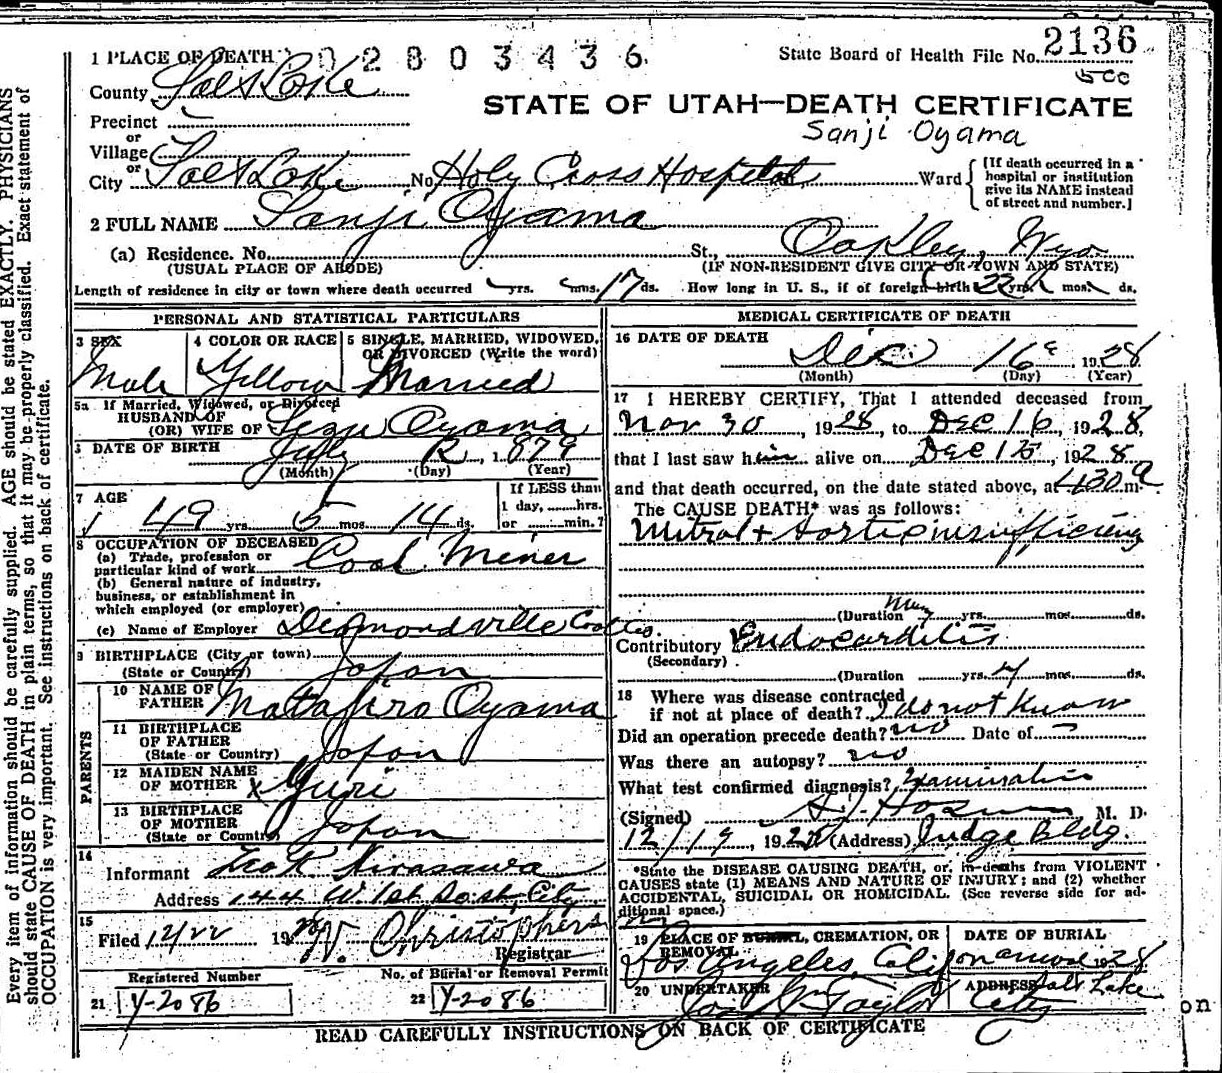 2136
State Board of Health File No.
1 PLACE OF DEATH 02803436
County Salt Lake
STATE OF UTAH—DEATH CERTIFICATE
Sanji Oyama
Precinct
or
Village
or
City Salt Lake No. Holy Cross Hospital Ward
[If death occurred in a
hospital or institution
give its NAME instead
of street and number.]
2 FULL NAME Sanji Oyama
(a) Residence. No. St., Oakley, Wyo
(USUAL PLACE OF ABODE) (IF NON-RESIDENT GIVE CITY OR TOWN AND STATE)
Length of residence in city or town where death occurred yrs. mos. 17 ds. How long in U. S., if of foreign birth 22 yrs. mos. ds.
PERSONAL AND STATISTICAL PARTICULARS
3 SEX
Male
4 COLOR OR RACE
Yellow
5 SINGLE, MARRIED, WIDOWED,
OR DIVORCED (Write the word)
Married
5a If Married, Widowed, or Divorced
HUSBAND OF
(OR) WIFE OF Oyama
DATE OF BIRTH July 1879
(Month) (Day) (Year)
7 AGE
49 yrs. 5 mos. 14 ds.
If LESS than
1 day, hrs.
or min.?
8 OCCUPATION OF DECEASED
(a) Trade, profession or
particular kind of work Coal Miner
(b) General nature of industry,
business, or establishment in
which employed (or employer)
(c) Name of Employer Diamondville
9 BIRTHPLACE (City or town)
(State or Country) Japan
PARENTS
10 NAME OF
FATHER Oyama
11 BIRTHPLACE
OF FATHER
(State or Country) Japan
12 MAIDEN NAME
OF MOTHER x Yuri
13 BIRTHPLACE
OF MOTHER
(State or Country) Japan
14
Informant
Address 144 W. 1st So. st. City
15
Filed 12/22 1928 W. Christophers
Registrar
Registered Number
21 Y-2086
No. of Burial or Removal Permit
22 Y-2086
MEDICAL CERTIFICATE OF DEATH
16 DATE OF DEATH
Dec 16 1928
(Month) (Day) (Year)
17 I HEREBY CERTIFY, That I attended deceased from
Nov 30, 1928, to Dec 16, 1928,
that I last saw him alive on Dec 15, 1928
and that death occurred, on the date stated above, at 430 a m.
The CAUSE DEATH* was as follows:
Mitral + Aortic insufficiency
(Duration many yrs. mos. ds.
Contributory Endocarditis
(Secondary)
(Duration yrs. mos. ds.
18 Where was disease contracted
if not at place of death? I do not know
Did an operation precede death? no Date of
Was there an autopsy? no
What test confirmed diagnosis? Examination
(Signed) M. D.
12/19, 1928 (Address) Judge Bldg.
*State the DISEASE CAUSING DEATH, or, in deaths from VIOLENT
CAUSES state (1) MEANS AND NATURE OF INJURY; and (2) whether
ACCIDENTAL, SUICIDAL OR HOMICIDAL. (See reverse side for ad-
ditional space.)
19 PLACE OF BURIAL, CREMATION, OR
REMOVAL
Los Angeles, Calif
DATE OF BURIAL
1928
20 UNDERTAKER
Taylor
ADDRESS Salt Lake
City
READ CAREFULLY INSTRUCTIONS ON BACK OF CERTIFICATE
on
Every item of information should be carefully supplied. AGE should be stated EXACTLY. PHYSICIANS
should state CAUSE OF DEATH in plain terms, so that it may be properly classified. Exact statement of
OCCUPATION is very important. See instructions on back of certificate.